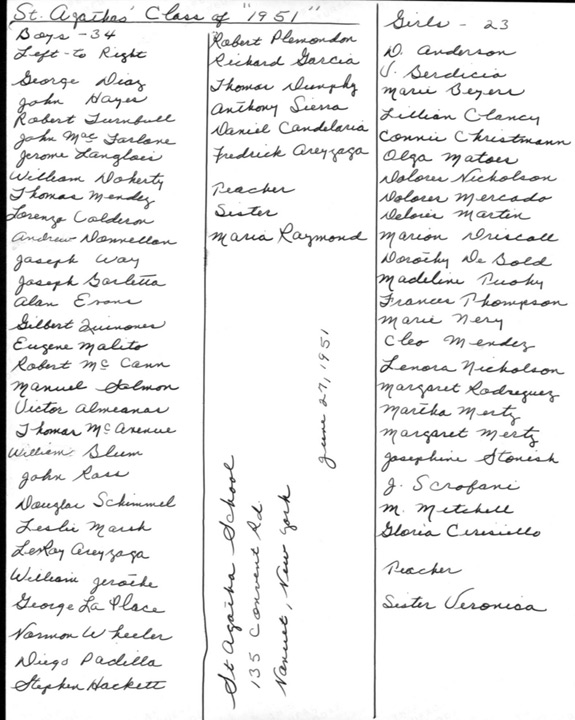 St. Agathas' Class of "1951"
Boys - 34
Left - to Right
George Diaz
John Hayes
Robert Turnbull
John MacFarlane
Jerome Langlois
William Doherty
Thomas Mendez
Lorenzo Calderon
Andrew Donnellan
Joseph Way
Joseph Barletta
Alan Evans
Gilbert Quinones
Eugene Malito
Robert McCann
Manuel Salmon
Victor Almeanas
Thomas McAvenue
William Blum
John Ross
Douglas Schimmel
Leslie Marsh
LeRoy Areyzaga
William Jerothe
George La Place
Norman Wheeler
Diego Padilla
Stephen Hackett
Robert Plemondon
Richard Garcia
Thomas Dunphy
Anthony Sierra
Daniel Candelaria
Fredrick Areyzaga
Teacher
Sister
Maria Raymond
St Agatha School
135 Convent Rd.
Nanuet, New York
June 27, 1951
Girls - 23
D. Anderson
V. Berdicia
Marie Beyers
Lillian Clancy
Connie Christmann
Olga Matos
Dolores Nicholson
Dolores Mercado
Delores Martin
Marion Driscoll
Dorothy De Bold
Madeline Pushy
Frances Thompson
Marie Nery
Cleo Mendez
Lenora Nicholson
Margaret Rodreguez
Martha Mertz
Margaret Mertz
Josephine Stonish
J. Scrofani
M. Mitchell
Gloria Ciresiello
Teacher
Sister Veronica